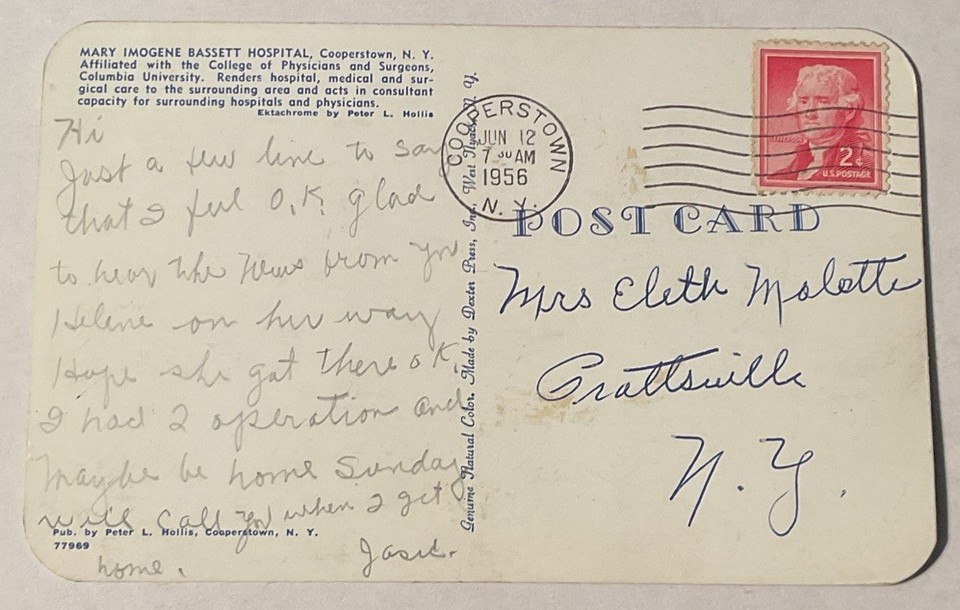 MARY IMOGENE BASSETT HOSPITAL, Cooperstown, N. Y.
Affiliated with the College of Physicians and Surgeons,
Columbia University. Renders hospital, medical and sur-
gical care to the surrounding area and acts in consultant
capacity for surrounding hospitals and physicians.
Ektachrome by Peter L. Hollis
Hi
Just a few line to say
that I feel O.K. glad
to hear the News from you
Helene on her way
Hope she got there O.K.
I had 2 operation and
Maybe be home Sunday
will call you when I get
home.
Pub. by Peter L. Hollis, Cooperstown, N. Y.
77969
Genuine Natural Color. Made by Dexter Press, Inc. West Nyack, N. Y.
COOPERSTOWN
JUN 12
7 30 AM
1956
N. Y.
JEFFERSON
2¢
U.S. POSTAGE
POST CARD
Mrs Eleth Malatte
Prattsville
N. Y.